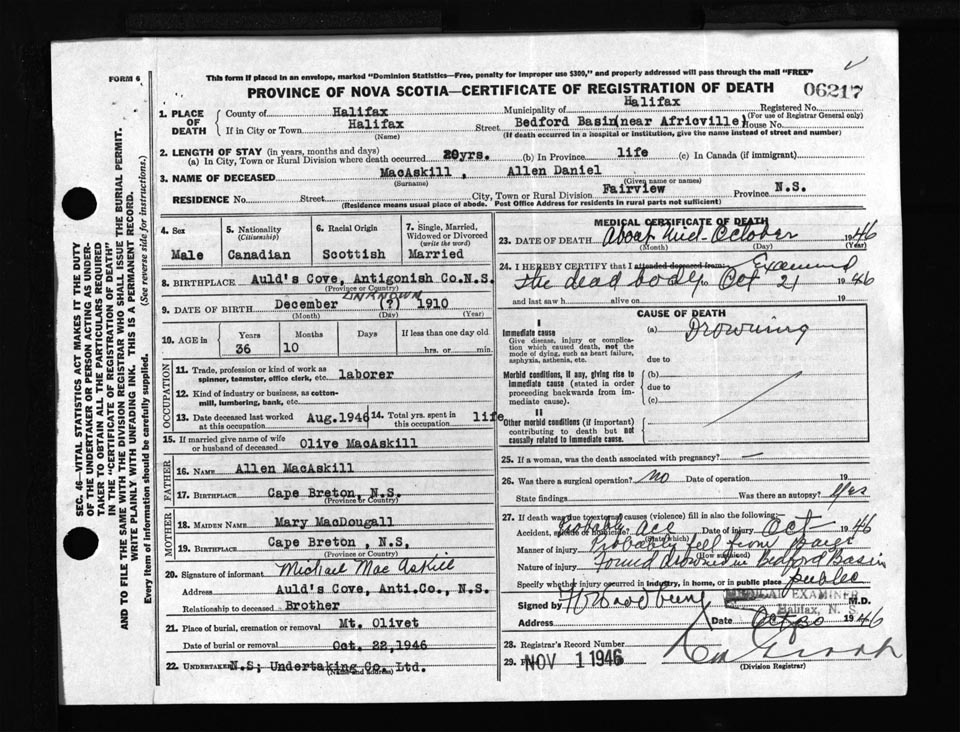 FORM 6
This form if placed in an envelope, marked "Dominion Statistics—Free, penalty for improper use $300," and properly addressed will pass through the mail "FREE"
PROVINCE OF NOVA SCOTIA—CERTIFICATE OF REGISTRATION OF DEATH
06217
1. PLACE OF DEATH
County of Halifax
Municipality of Halifax
Registered No.
(For use of Registrar General only)
If in City or Town Halifax
(Name)
Street Bedford Basin(near Africville) House No.
(If death occurred in a hospital or institution, give the name instead of street and number)
2. LENGTH OF STAY (in years, months and days)
(a) In City, Town or Rural Division where death occurred 20yrs. (b) In Province life (c) In Canada (if immigrant)
3. NAME OF DECEASED MacAskill, Allen Daniel
(Surname) (Given name or names)
RESIDENCE No. Street City, Town or Rural Division Fairview Province N.S.
(Residence means usual place of abode. Post Office Address for residents in rural parts not sufficient)
4. Sex
Male
5. Nationality (Citizenship)
Canadian
6. Racial Origin
Scottish
7. Single, Married, Widowed or Divorced (write the word)
Married
8. BIRTHPLACE Auld's Cove, Antigonish Co.N.S.
(Province or Country)
UNKNOWN
9. DATE OF BIRTH December (?) 1910
(Month) (Day) (Year)
10. AGE in
Years Months Days If less than one day old
36 10 hrs. or min.
OCCUPATION
11. Trade, profession or kind of work as spinner, teamster, office clerk, etc. laborer
12. Kind of industry or business, as cotton-mill, lumbering, bank, etc.
13. Date deceased last worked at this occupation Aug.1946
14. Total yrs. spent in this occupation life
15. If married give name of wife or husband of deceased Olive MacAskill
FATHER
16. NAME Allen MacAskill
17. BIRTHPLACE Cape Breton, N.S.
(Province or Country)
MOTHER
18. MAIDEN NAME Mary MacDougall
19. BIRTHPLACE Cape Breton, N.S.
(Province or Country)
20. Signature of informant Michael MacAskill
Address Auld's Cove, Anti.Co., N.S.
Relationship to deceased Brother
21. Place of burial, cremation or removal Mt. Olivet
Date of burial or removal Oct. 22,1946
22. UNDERTAKER N.S; Undertaking Co. Ltd.
(Name and address)
MEDICAL CERTIFICATE OF DEATH
23. DATE OF DEATH About Mid-October 1946
(Month) (Day) (Year)
24. I HEREBY CERTIFY that I attended deceased from: Examined
the dead body to Oct 21 1946
and last saw h alive on 19
CAUSE OF DEATH
I
Immediate cause
Give disease, injury or complication which caused death, not the mode of dying, such as heart failure, asphyxia, asthenia, etc.
(a) Drowning
due to
Morbid conditions, if any, giving rise to immediate cause (stated in order proceeding backwards from immediate cause).
(b)
due to
(c)
II
Other morbid conditions (if important) contributing to death but not causally related to immediate cause.
25. If a woman, was the death associated with pregnancy? —
26. Was there a surgical operation? No Date of operation 19
State findings Was there an autopsy? Yes
27. If death was due to external causes (violence) fill in also the following:
Accident, suicide or homicide? Probably acc Date of injury Oct 1946
(State which)
Manner of injury Probably fell from barge
(How sustained)
Nature of injury Found drowned in Bedford Basin
Specify whether injury occurred in industry, in home, or in public place public
Signed by M.D.
MEDICAL EXAMINER
Halifax, N. S.
Address Date Oct 30 1946
28. Registrar's Record Number
29. NOV 1 1946
(Division Registrar)
SEC. 46—VITAL STATISTICS ACT MAKES IT THE DUTY
OF THE UNDERTAKER OR PERSON ACTING AS UNDER-
TAKER TO OBTAIN ALL THE PARTICULARS REQUIRED
IN THE "CERTIFICATE OF REGISTRATION OF DEATH"
AND TO FILE THE SAME WITH THE DIVISION REGISTRAR WHO SHALL ISSUE THE BURIAL PERMIT.
WRITE PLAINLY WITH UNFADING INK. THIS IS A PERMANENT RECORD.
Every item of information should be carefully supplied. (See reverse side for instructions.)